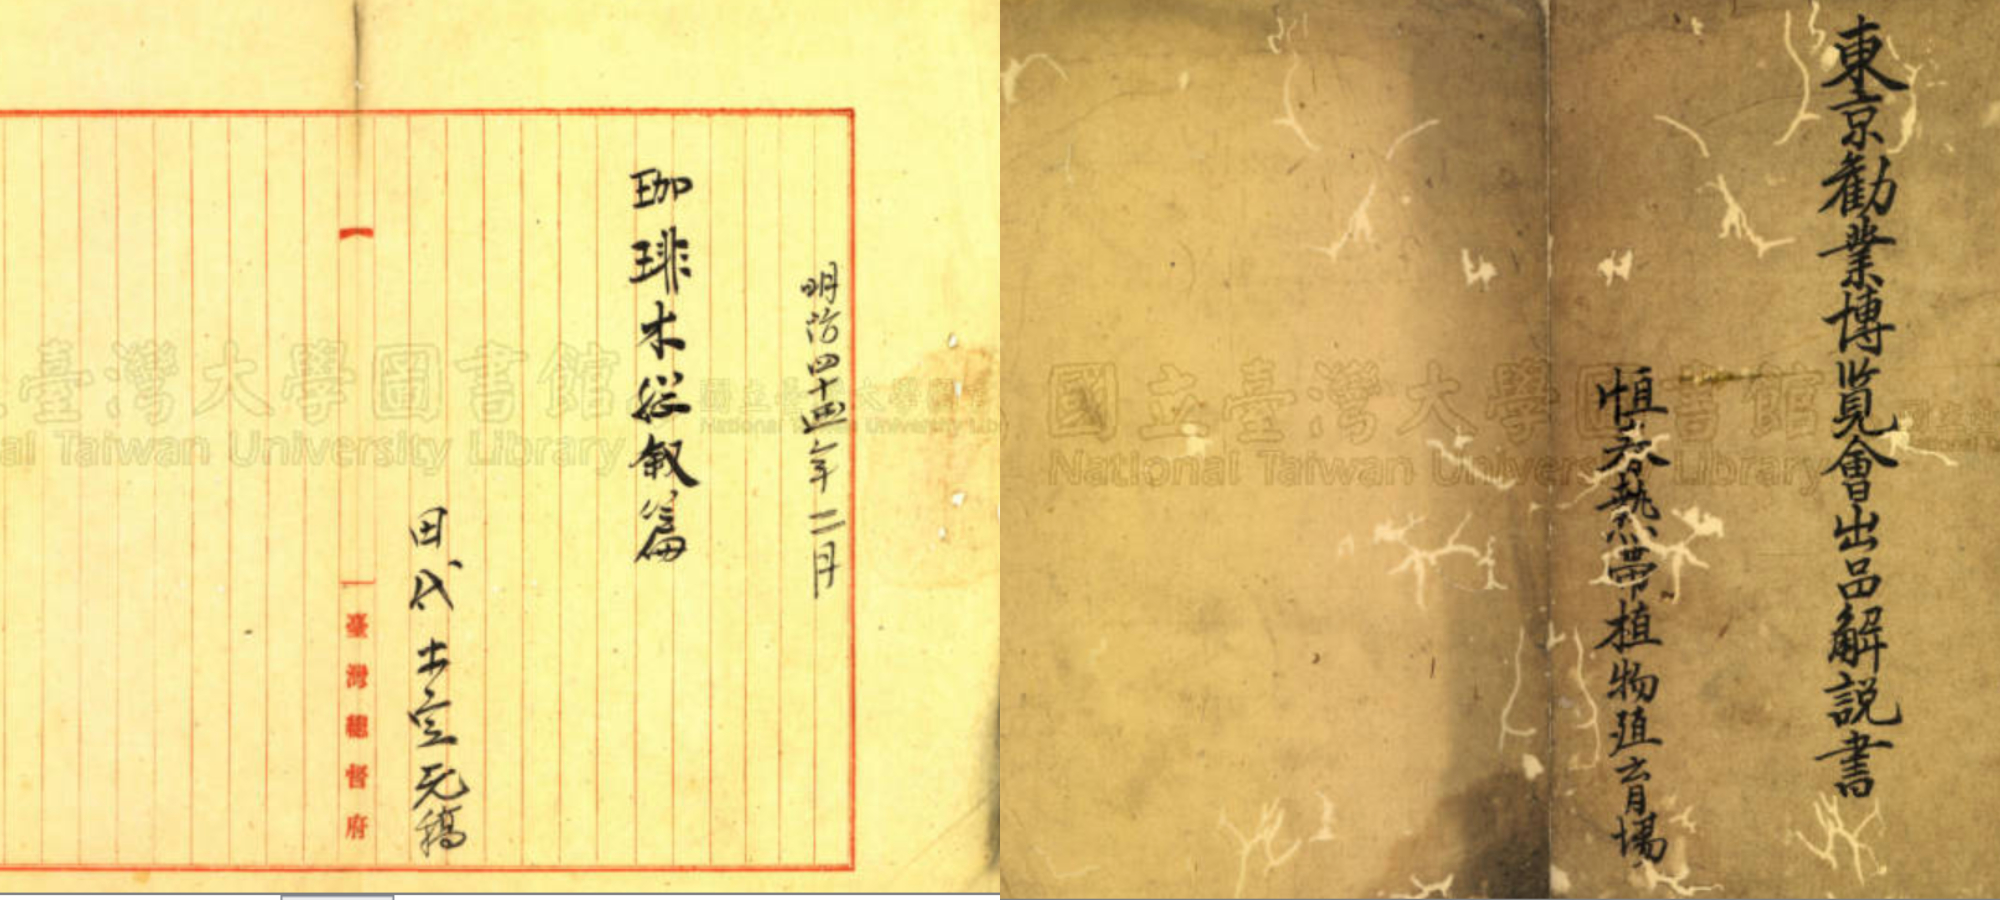 明治四十四年二月
珈琲木総叙篇
田代安定元稿
臺灣總督府
臺灣大學圖書館
al Taiwan University Library
國立臺灣大學圖書館
National Taiwan University Library
東京勧業博覧會出品解説書
恒春熱帯植物殖育場
國立臺灣大學圖書館
National Taiwan University Library